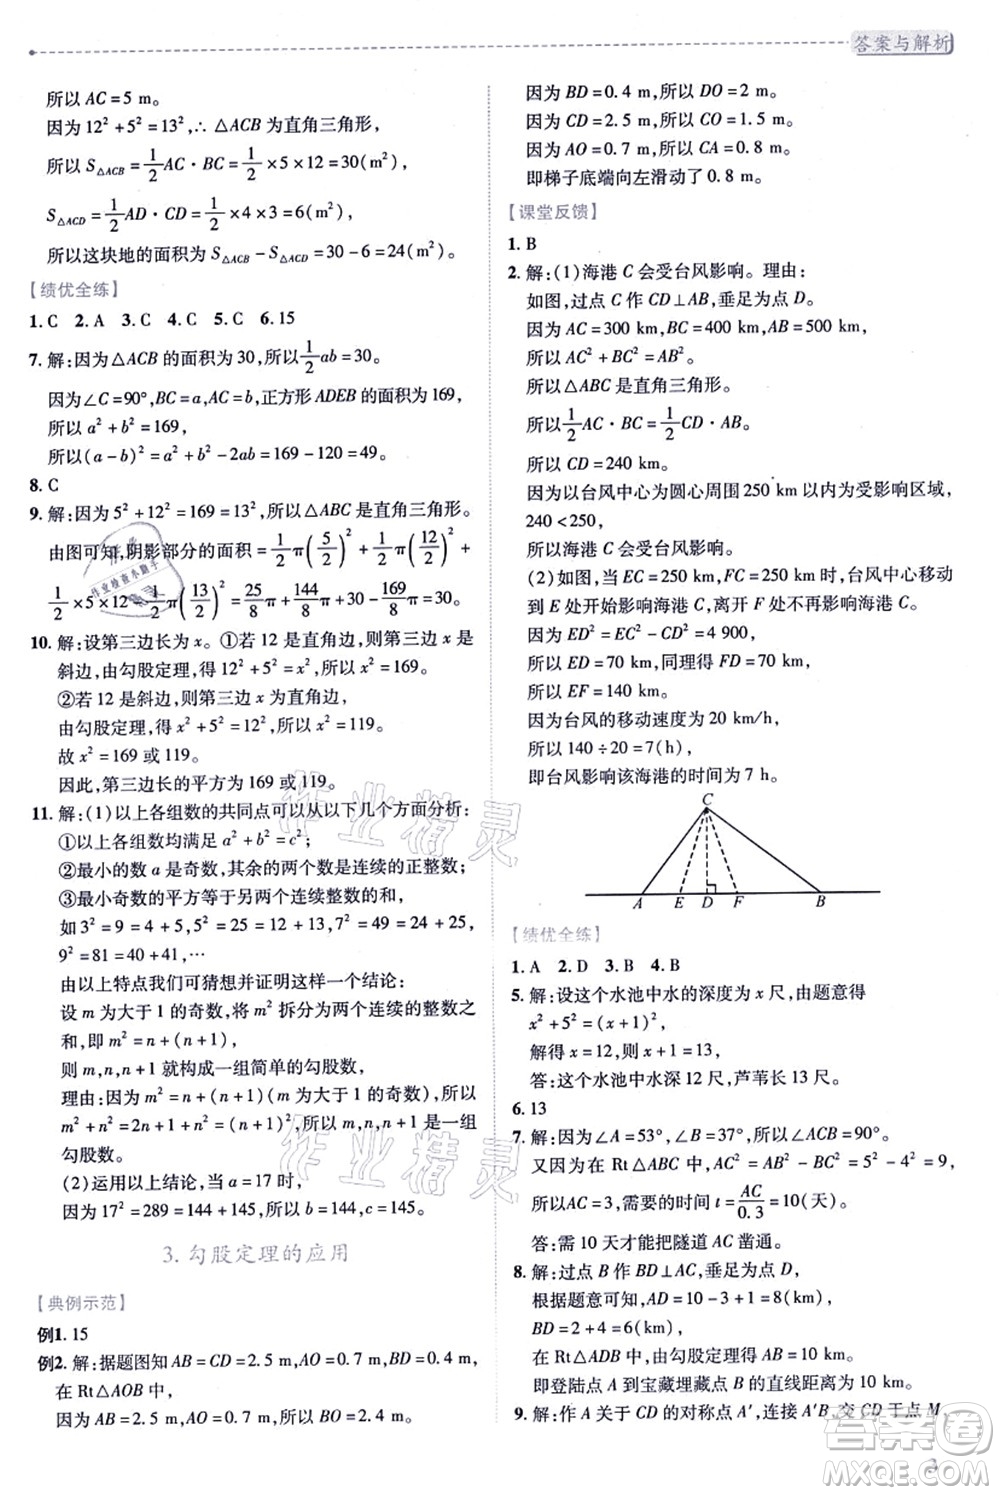 答案与解析
所以 AC=5 m。
因为 12²+5²=13²,∴△ACB 为直角三角形,
所以 S△ACB=1/2 AC·BC=1/2×5×12=30(m²),
S△ACD=1/2 AD·CD=1/2×4×3=6(m²),
所以这块地的面积为 S△ACB-S△ACD=30-6=24(m²)。
【绩优全练】
1. C 2. A 3. C 4. C 5. C 6. 15
7. 解:因为△ACB 的面积为 30,所以 1/2 ab=30。
因为∠C=90°,BC=a,AC=b,正方形 ADEB 的面积为 169,
所以 a²+b²=169,
所以(a-b)²=a²+b²-2ab=169-120=49。
8. C
9. 解:因为 5²+12²=169=13²,所以△ABC 是直角三角形。
由图可知,阴影部分的面积=1/2π(5/2)²+1/2π(12/2)²+
1/2×5×12-1/2π(13/2)²=25/8π+144/8π+30-169/8π=30。
10. 解:设第三边长为 x。①若 12 是直角边,则第三边 x 是
斜边,由勾股定理,得 12²+5²=x²,所以 x²=169。
②若 12 是斜边,则第三边 x 为直角边,
由勾股定理,得 x²+5²=12²,所以 x²=119。
故 x²=169 或 119。
因此,第三边长的平方为 169 或 119。
11. 解:(1)以上各组数的共同点可以从以下几个方面分析:
①以上各组数均满足 a²+b²=c²;
②最小的数是奇数,其余的两个数是连续的正整数;
③最小奇数的平方等于另两个连续整数的和,
如 3²=9=4+5,5²=25=12+13,7²=49=24+25,
9²=81=40+41,…
由以上特点我们可猜想并证明这样一个结论:
设 m 为大于 1 的奇数,将 m² 拆分为两个连续的整数之
和,即 m²=n+(n+1),
则 m,n,n+1 就构成一组简单的勾股数,
理由:因为 m²=n+(n+1)(m 为大于 1 的奇数),所以
m²+n²=2n+1+n²=(n+1)²,所以 m,n,n+1 是一组
勾股数。
(2)运用以上结论,当 a=17 时,
因为 17²=289=144+145,所以 b=144,c=145。
3. 勾股定理的应用
【典例示范】
例1. 15
例2. 解:据题图知 AB=CD=2.5 m,AO=0.7 m,BD=0.4 m,
在 Rt△AOB 中,
因为 AB=2.5 m,AO=0.7 m,所以 BO=2.4 m。
因为 BD=0.4 m,所以 DO=2 m。
因为 CD=2.5 m,所以 CO=1.5 m。
因为 AO=0.7 m,所以 CA=0.8 m。
即梯子底端向左滑动了 0.8 m。
【课堂反馈】
1. B
2. 解:(1)海港 C 会受台风影响。理由:
如图,过点 C 作 CD⊥AB,垂足为点 D。
因为 AC=300 km,BC=400 km,AB=500 km,
所以 AC²+BC²=AB²。
所以△ABC 是直角三角形。
所以 1/2 AC·BC=1/2 CD·AB。
所以 CD=240 km。
因为以台风中心为圆心周围 250 km 以内为受影响区域,
240<250,
所以海港 C 会受台风影响。
(2)如图,当 EC=FC=250 km 时,台风中心移动
到 E 处开始影响海港 C,离开 F 处不再影响 C。
因为 ED²=EC²-CD²=4 900,
所以 ED=70 km,同理得 FD=70 km,
所以 EF=140 km。
因为台风的移动速度为 20 km/h,
所以 140÷20=7(h),
即台风影响该海港的时间为 7 h。
C
A E D F B
【绩优全练】
1. A 2. D 3. B 4. B
5. 解:设这个水池中水的深度为 x 尺,由题意得
x²+5²=(x+1)²,
解得 x=12,则 x+1=13,
答:这个水池中水深 12 尺,芦苇长 13 尺。
6. 13
7. 解:因为∠A=53°,∠B=37°,所以∠ACB=90°。
又因为在 Rt△ABC 中,AC²=AB²-BC²=5²-4²=9,
所以AC=3,需要的时间 t=AC/0.3=10(天)。
答:需 10 天才能把隧道 AC 凿通。
8. 解:过点 B 作 BD⊥AC,垂足为点 D。
根据题意可知,AD=10-3+1=8(km),
BD=2+4=6(km),
在 Rt△ADB 中,由勾股定理得 AB=10 km。
即登陆点 A 到宝藏埋藏点 B 的直线距离为 10 km。
9. 解:作 A 关于 CD 的对称点 A′,连接 A′B,交 CD 于点 M,
作业精灵
作业精灵
作业检查小助手
答案圈
MXQE.COM